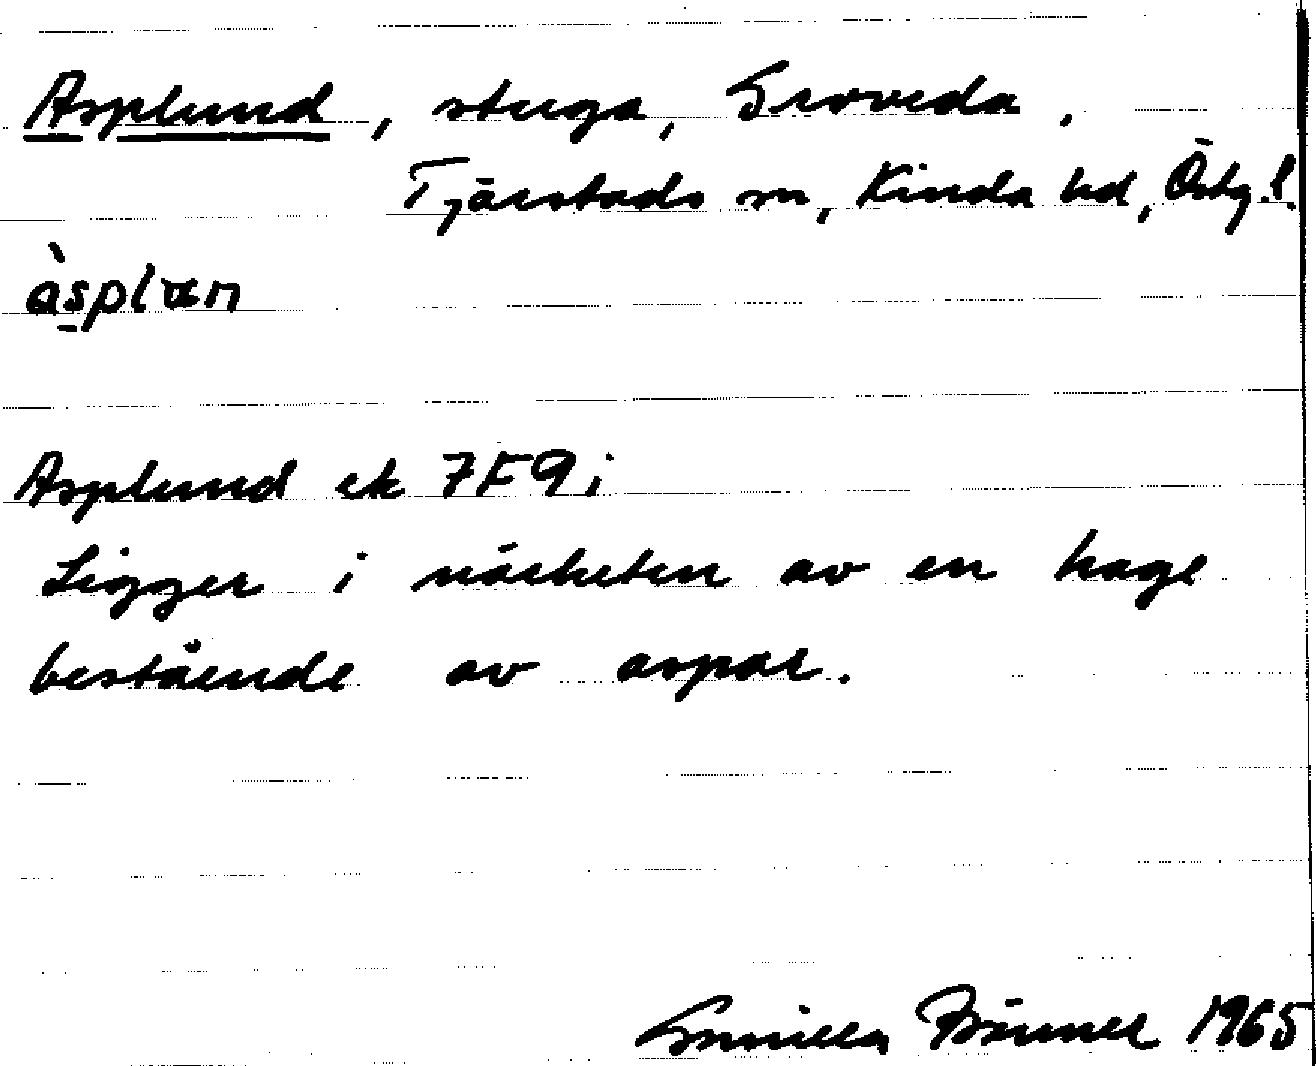 Asplund, stuga, Groveda.
Tjärstads sn, Kinda hd, Östg.l.
àsplan
Asplund ek 7F9i
Ligger i närheten av en hage
bestående av aspar.
Gunilla 1965